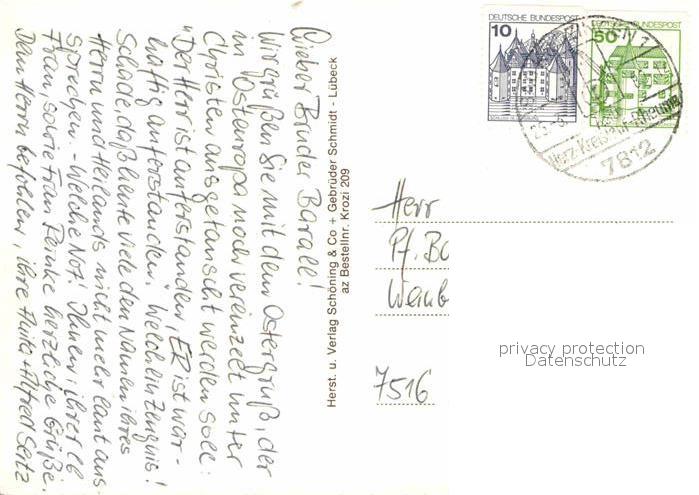 Lieber Bruder Barall!
Wir grüßen Sie mit dem Ostergruß, der
in Osteuropa noch vereinzelt unter
Christen ausgetauscht werden soll:
"Der Herr ist auferstanden, ER ist war-
haftig auferstanden. Welch ein Zeugnis!
Schade, daß heute viele den Namen ihres
Herrn und Heilands nicht mehr laut aus-
sprechen. - Welche Not! Ihnen, ihrer lb
Frau, sowie Frau Reinke herzliche Grüße.
Dem Herrn befohlen, ihre Anita + Alfred Seitz
Herst. u. Verlag Schöning & Co + Gebrüder Schmidt - Lübeck
az Bestellnr. Krozi 209
DEUTSCHE BUNDESPOST
10
DEUTSCHE BUNDESPOST
50
Herz-Kreislauf-Rheuma
7812
Herr
Pf. Ba
Weinb
7516
privacy protection
Datenschutz